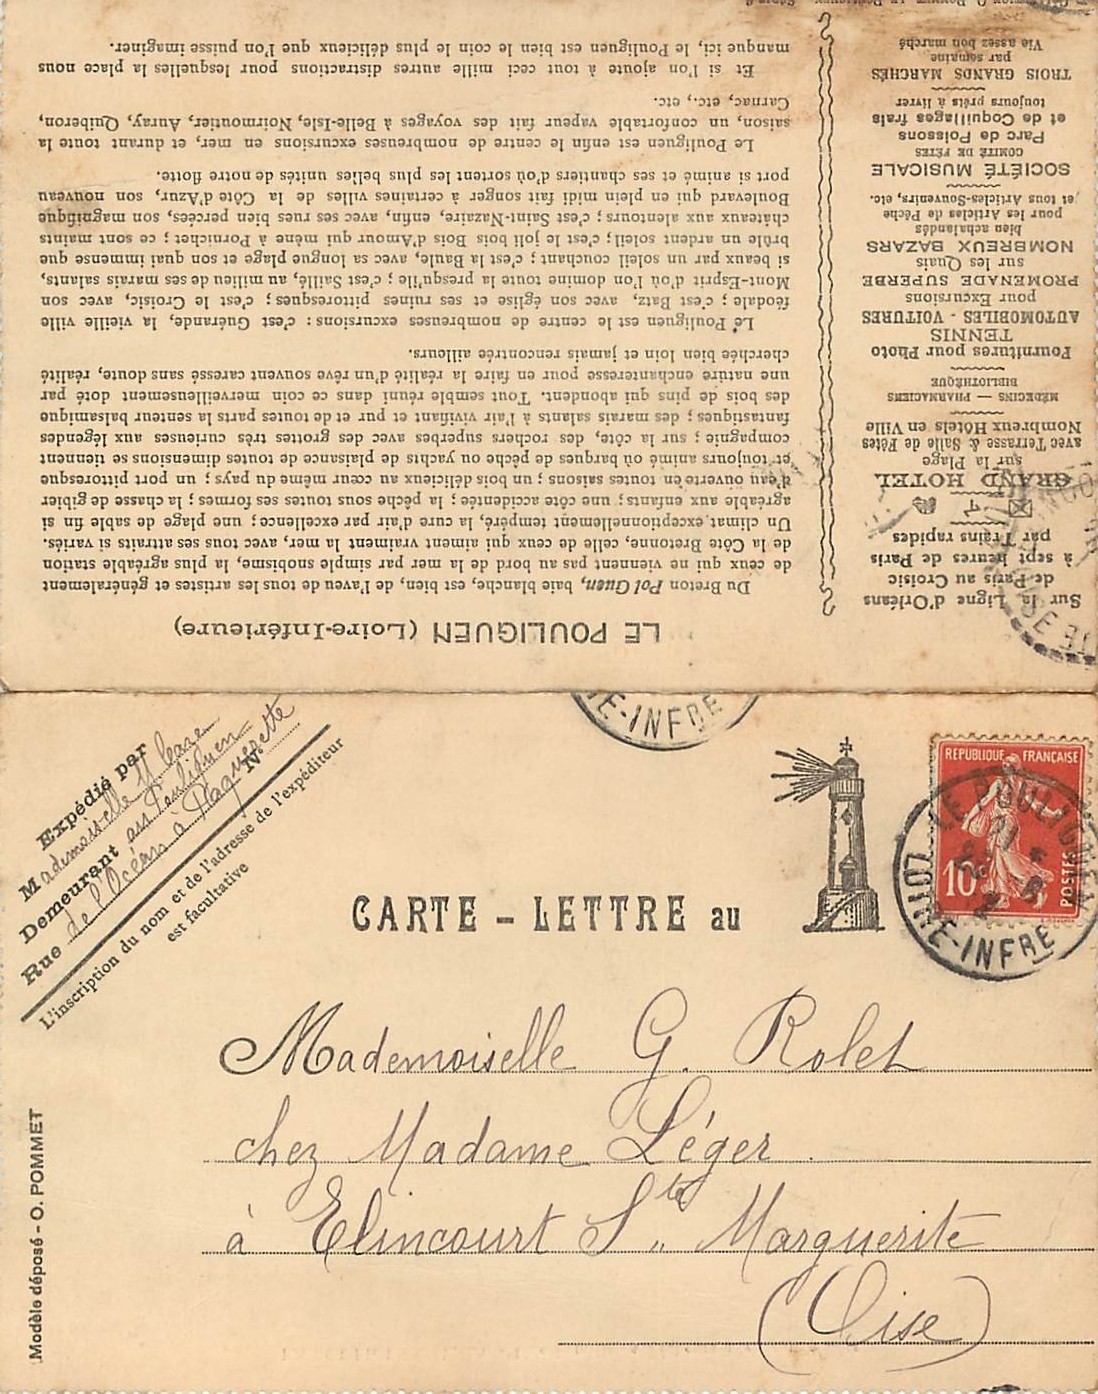 LE POULIGUEN (Loire-Inférieure)
Du Breton Pol Guen, baie blanche, est bien, de l'aveu de tous les artistes et généralement
de ceux qui ne viennent pas au bord de la mer par simple snobisme, la plus agréable station
de la Côte Bretonne, celle de ceux qui aiment vraiment la mer, avec tous ses attraits si variés.
Un climat exceptionnellement tempéré, la cure d'air par excellence ; une plage de sable fin si
agréable aux enfants ; une côte accidentée ; la pêche sous toutes ses formes ; la chasse de gibier
d'eau ouverte en toutes saisons ; un bois délicieux au cœur même du pays ; un port pittoresque
et toujours animé où barques de pêche ou yachts de plaisance de toutes dimensions se tiennent
compagnie ; sur la côte, des rochers superbes avec des grottes très curieuses aux légendes
fantastiques ; des marais salants à l'air vivifiant et pur et de toutes parts la senteur balsamique
des bois de pins qui abondent. Tout semble réuni dans ce coin merveilleusement doté par
une nature enchanteresse pour en faire la réalité d'un rêve souvent caressé sans doute, réalité
cherchée bien loin et jamais rencontrée ailleurs.
Le Pouliguen est le centre de nombreuses excursions : c'est Guérande, la vieille ville
féodale ; c'est Batz, avec son église et ses ruines pittoresques ; c'est le Croisic, avec son
Mont-Esprit d'où l'on domine toute la presqu'île ; c'est Saillé, au milieu de ses marais salants,
si beaux par un soleil couchant ; c'est la Baule, avec sa longue plage et son quai immense que
brûle un ardent soleil ; c'est le joli bois Bois d'Amour qui mène à Pornichet ; ce sont maints
châteaux aux alentours ; c'est Saint-Nazaire, enfin, avec ses rues bien percées, son magnifique
Boulevard qui en plein midi fait songer à certaines villes de la Côte d'Azur, son nouveau
port si animé et ses chantiers d'où sortent les plus belles unités de notre flotte.
Le Pouliguen est enfin le centre de nombreuses excursions en mer, et durant toute la
saison, un confortable vapeur fait des voyages à Belle-Isle, Noirmoutier, Auray, Quiberon,
Carnac, etc., etc.
Et si l'on ajoute à tout ceci mille autres distractions pour lesquelles la place nous
manque ici, le Pouliguen est bien le coin le plus délicieux que l'on puisse imaginer.
Sur la Ligne d'Orléans
de Paris au Croisic
à sept heures de Paris
par Trains rapides
GRAND HOTEL
sur la Plage
avec Terrasse & Salle de Fêtes
Nombreux Hôtels en Ville
MÉDECINS — PHARMACIENS
BIBLIOTHÈQUE
Fournitures pour Photo
TENNIS
AUTOMOBILES - VOITURES
pour Excursions
PROMENADE SUPERBE
sur les Quais
NOMBREUX BAZARS
bien achalandés
pour les Articles de Pêche
et tous Articles-Souvenirs, etc.
SOCIÉTÉ MUSICALE
COMITÉ DE FÊTES
Parc de Poissons
et de Coquillages frais
toujours prêts à livrer
TROIS GRANDS MARCHÉS
par semaine
Vie assez bon marché
Expédié par
Mademoiselle
Demeurant au Pouliguen
Rue de l'Océan à Plaguerette N°
L'inscription du nom et de l'adresse de l'expéditeur
est facultative
LOIRE-INFRE
RÉPUBLIQUE FRANÇAISE
10c
POSTES
LE POULIGUEN
21
LOIRE-INFRE
CARTE - LETTRE au
Mademoiselle G. Rolet
chez Madame Léger
à Elincourt Ste Marguerite
(Oise)
Modèle déposé - O. POMMET